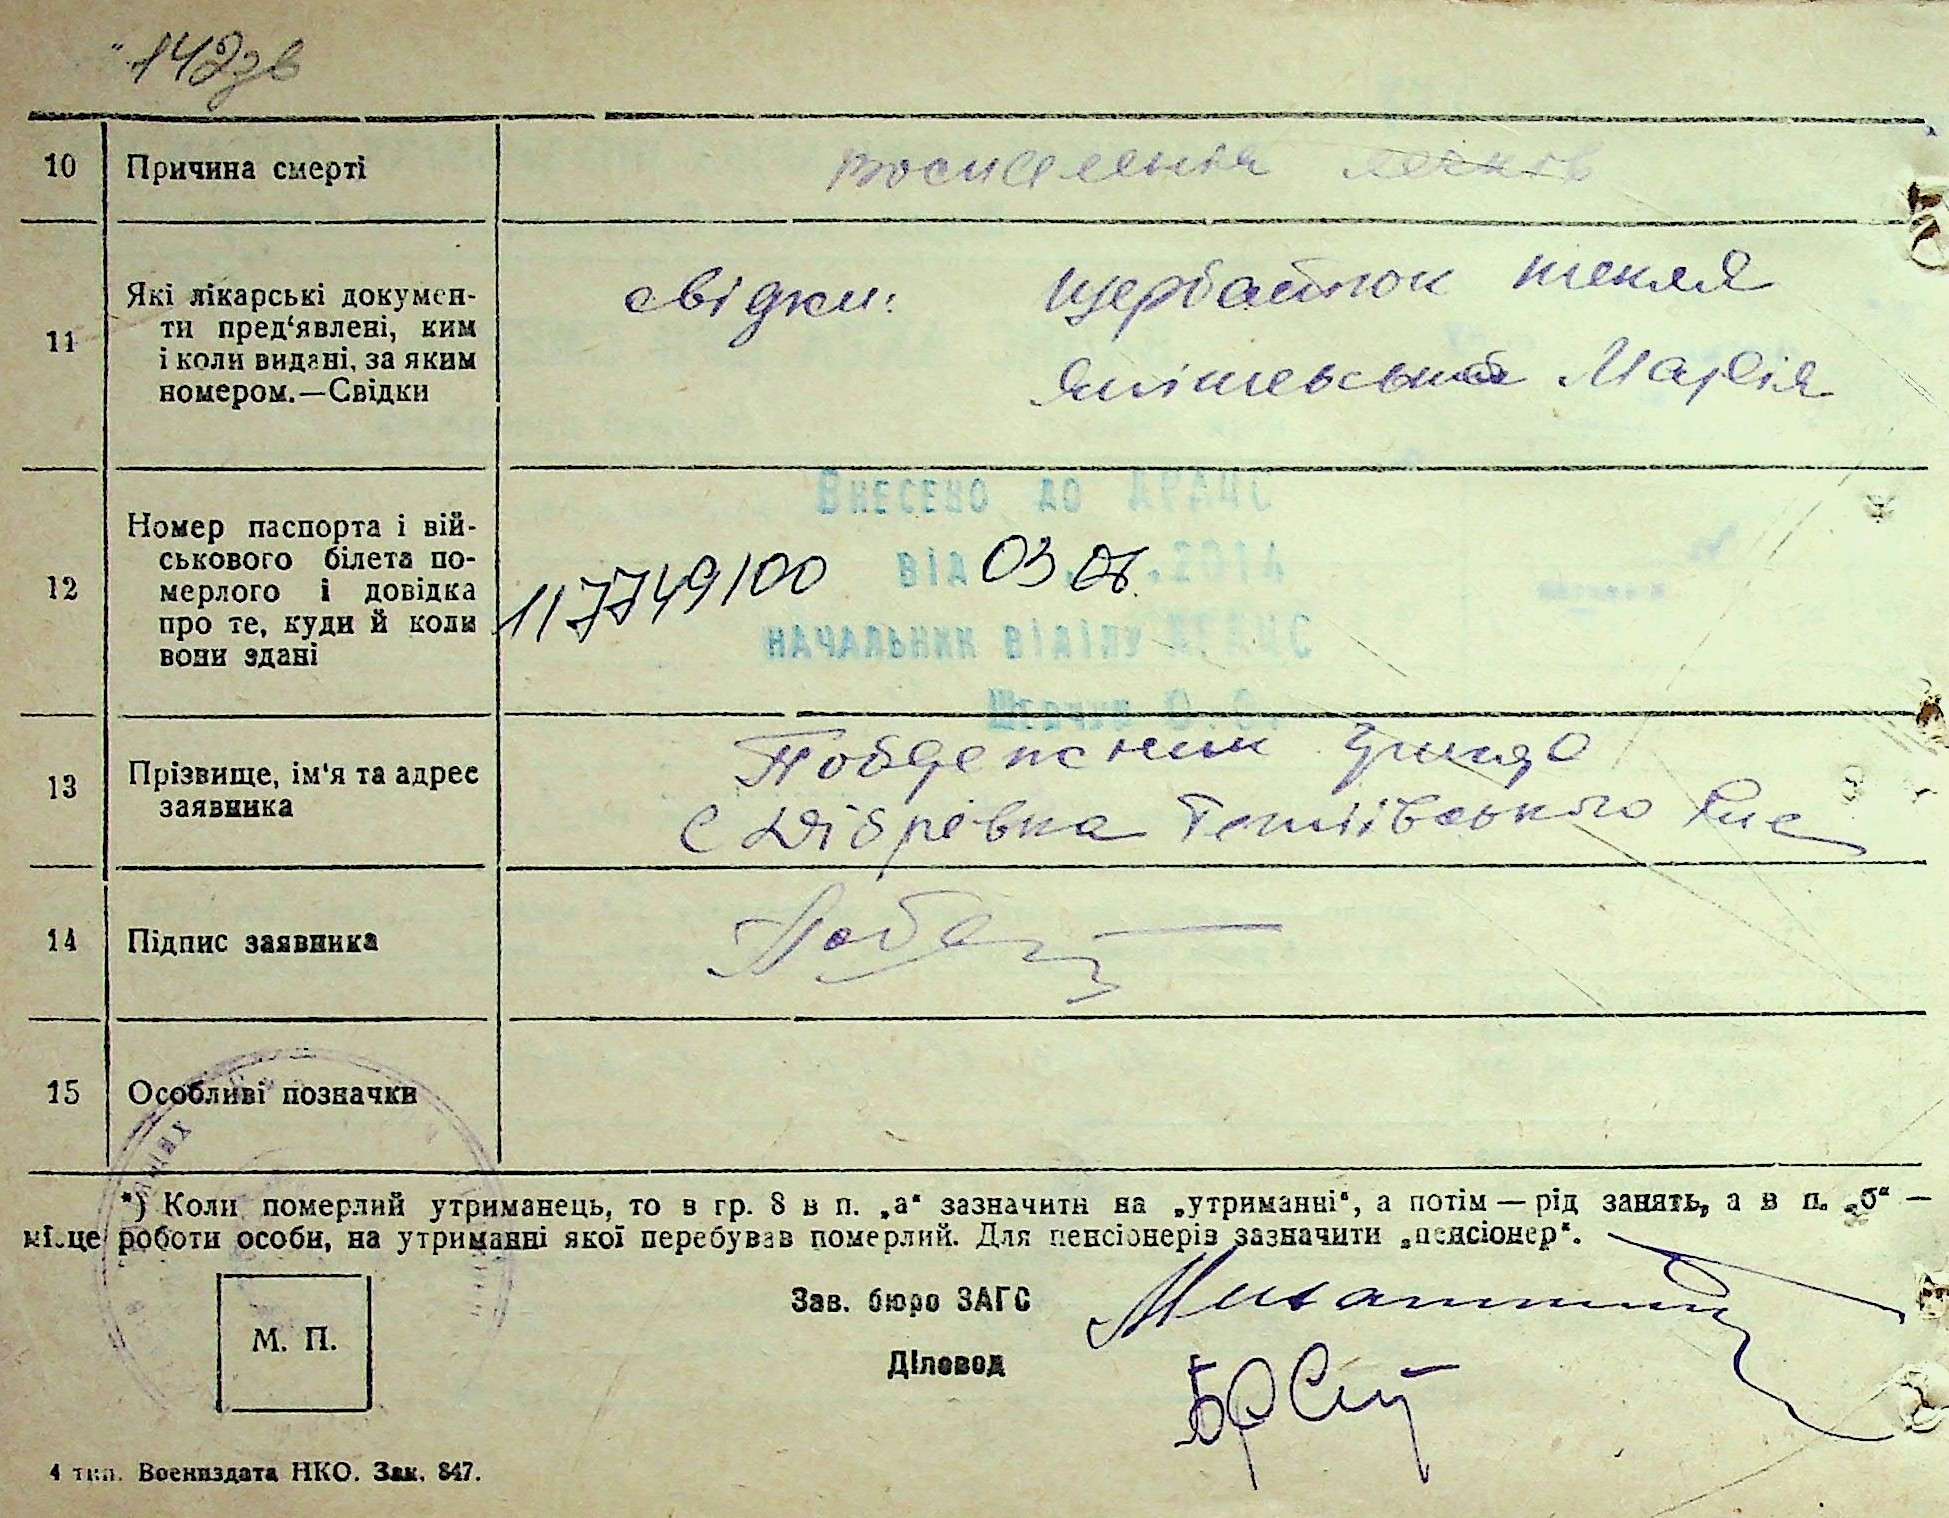 142зв
10 Причина смерті
воспаленія легків
11 Які лікарські докумен-
ти пред‘явлені, ким
і коли видані, за яким
номером.—Свідки
свідки: Щербатюк Текля
Марія
12 Номер паспорта і вій-
ськового білета по-
мерлого і довідка
про те, куди й коли
вони здані
117749100
Внесено до ДРАЦС
від 03.06.2014
начальник відділу ДРАЦС
Шевчук О.О.
13 Прізвище, ім'я та адрес
заявника
с Дібрівка Тетіївського
14 Підпис заявника
15 Особливі позначки
*) Коли померлий утриманець, то в гр. 8 в п. „а“ зазначити на „утриманні“, а потім — рід занять, а в п. „б“ —
місце роботи особи, на утриманні якої перебував померлий. Для пенсіонерів зазначити „пенсіонер“.
М. П.
Зав. бюро ЗАГС
Діловод
4 тип. Воениздата НКО. Зак. 847.